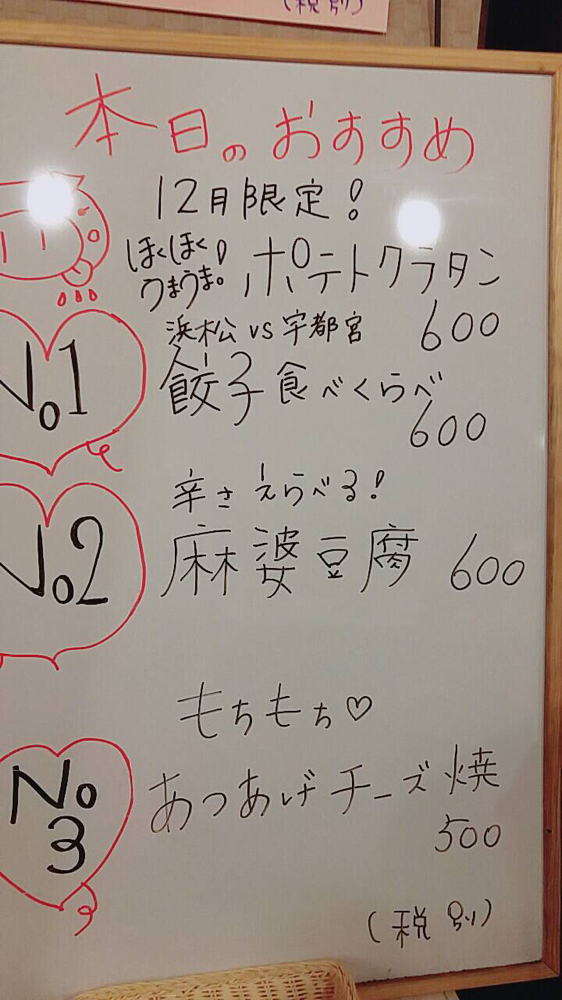 (税別)
本日のおすすめ
12月限定!
ほくほく
うまうま!
ポテトグラタン
600
No1
浜松 vs 宇都宮
餃子食べくらべ
600
No2
辛さえらべる!
麻婆豆腐 600
もちもち♡
No
3
あつあげチーズ焼
500
(税別)